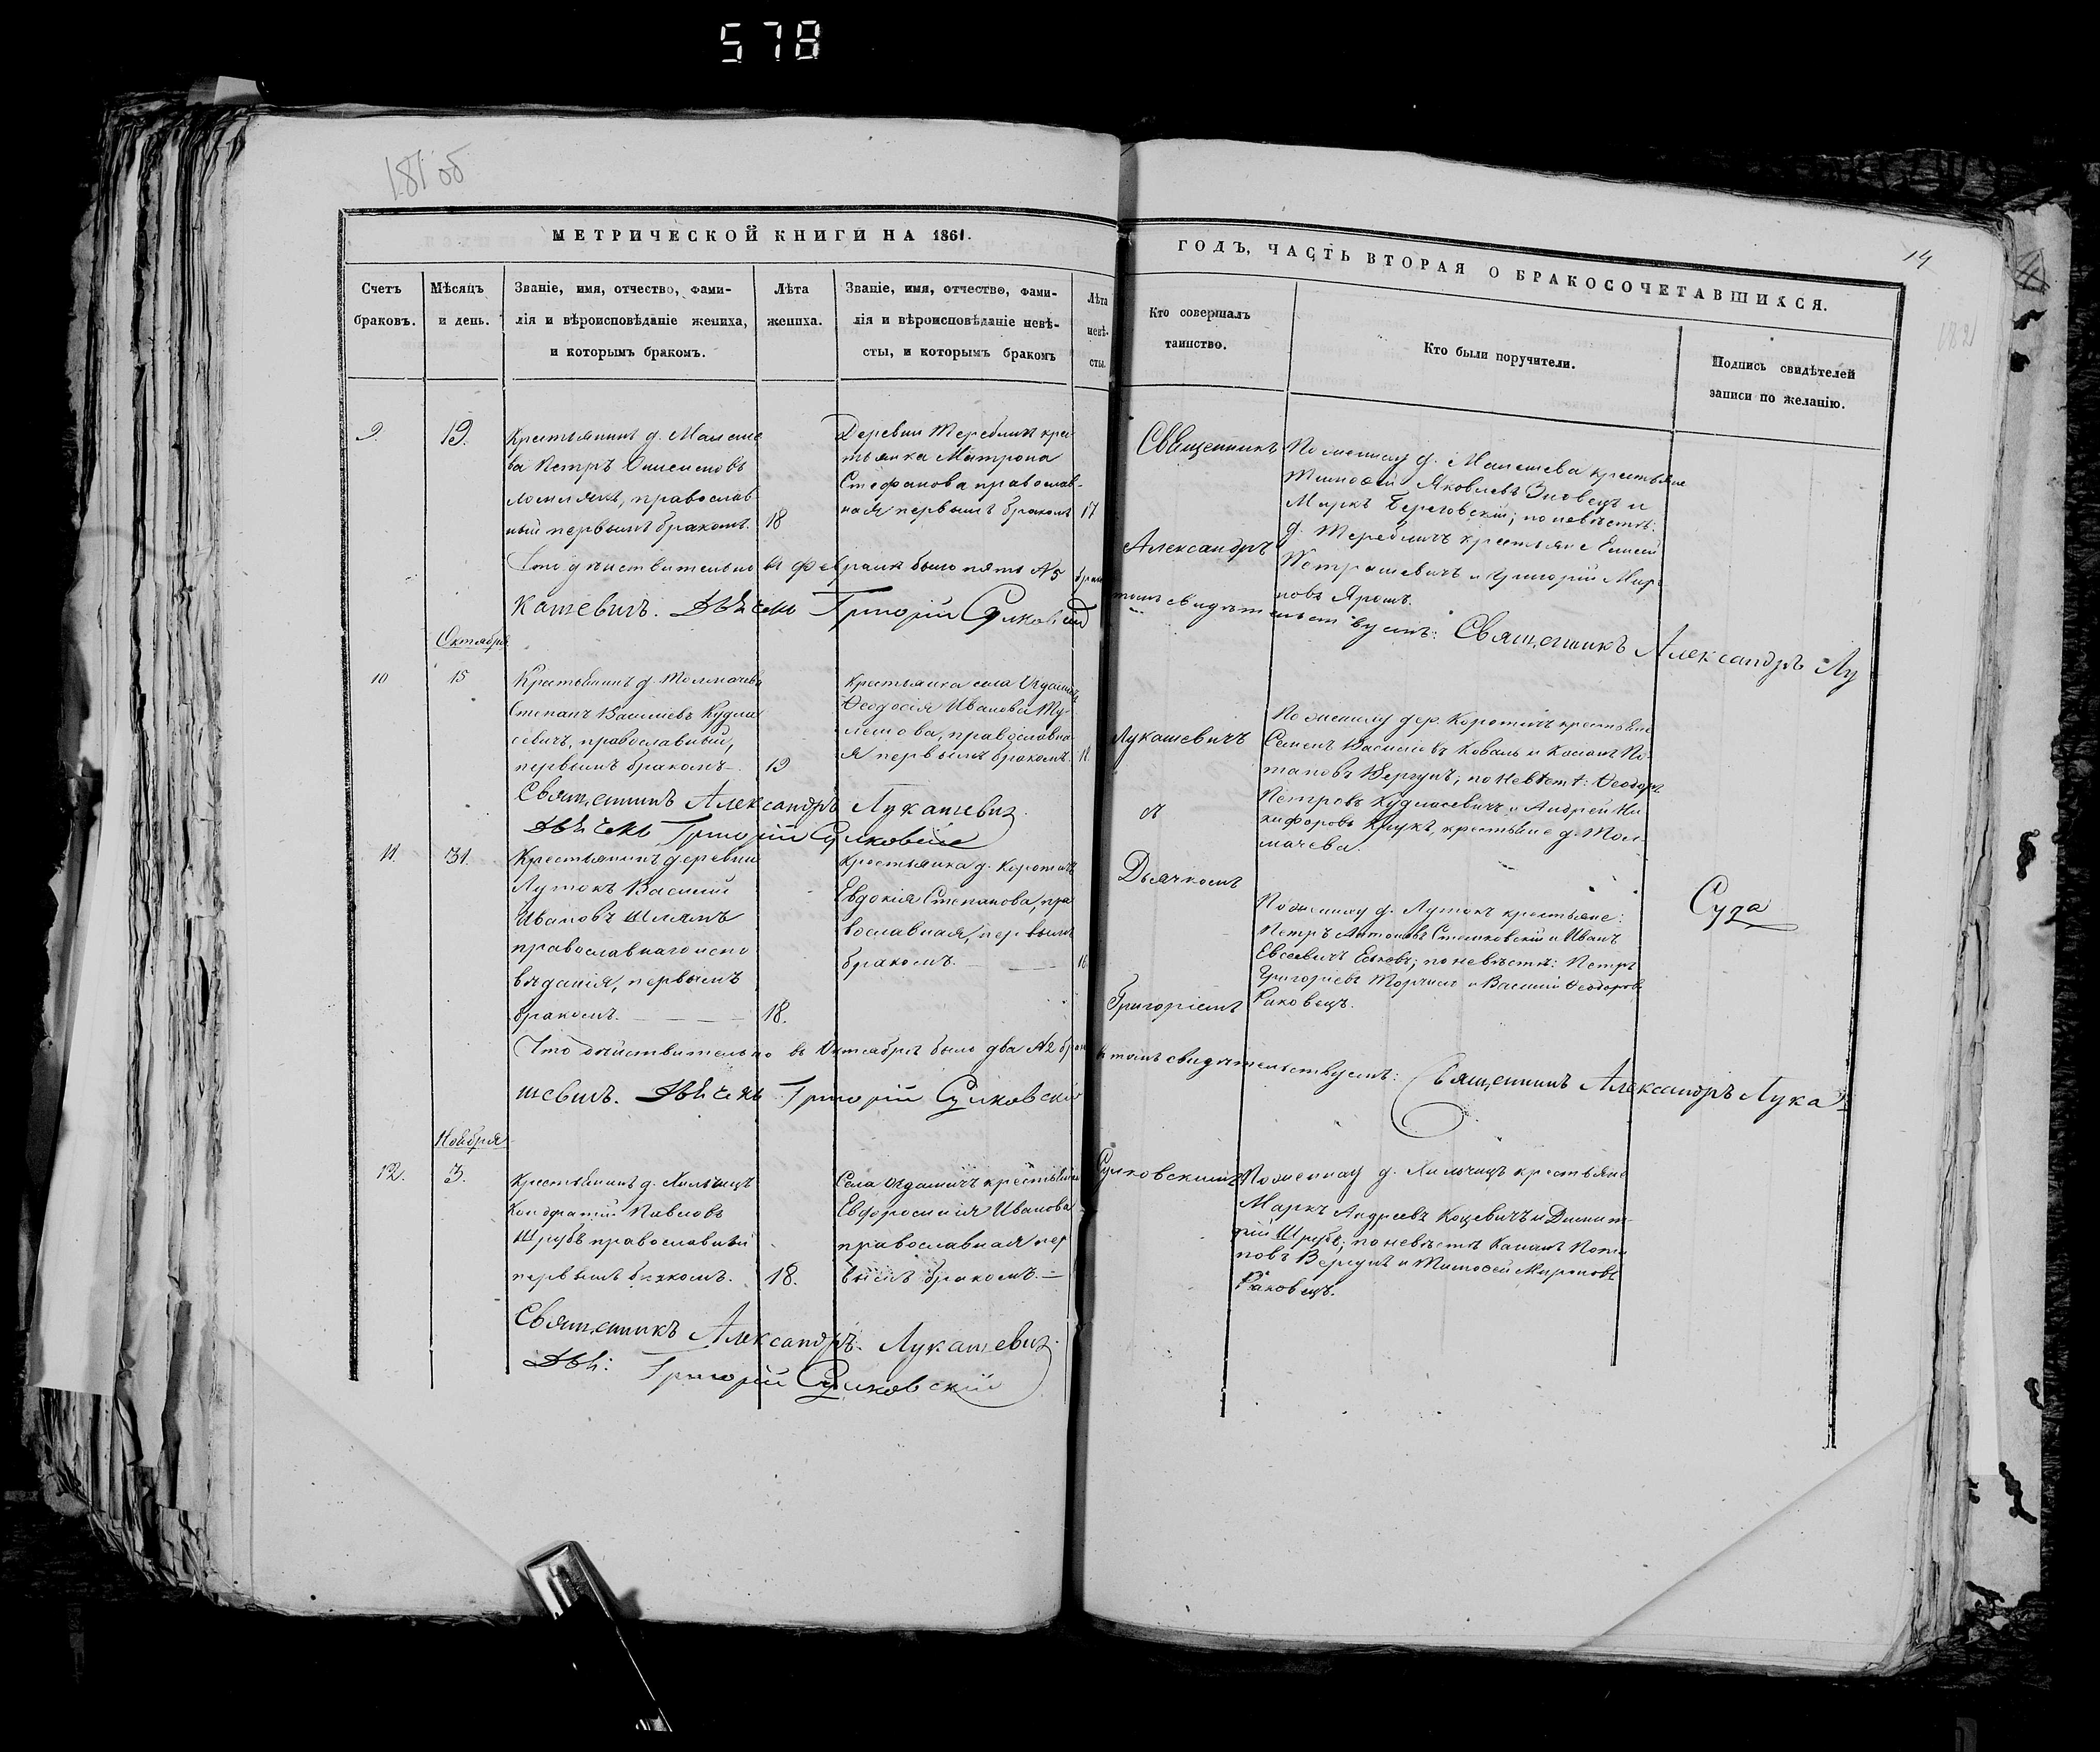 578
181 об
14
МЕТРИЧЕСКОЙ КНИГИ НА 1861.
ГОДЪ, ЧАСТЬ ВТОРАЯ О БРАКОСОЧЕТАВШИХСЯ.
Счетъ
браковъ.
Мѣсяцъ
и день.
Званіе, имя, отчество, фами-
лія и вѣроисповѣданіе жениха,
и которымъ бракомъ.
Лѣта
жениха.
Званіе, имя, отчество, фами-
лія и вѣроисповѣданіе невѣ-
сты, и которымъ бракомъ
Лѣта
невѣ-
сты.
Кто совершалъ
таинство.
Кто были поручители.
Подпись свидѣтелей
записи по желанію.
9.
19.
Крестьянинъ д. Малеше
ва Петръ
православ
ный первымъ бракомъ.
18
Деревни Теребличъ крес
тьянка Матрона
Стефанова православ-
ная первымъ бракомъ
17
Священникъ
Александръ
По жениху д. Малешева крестьяне
Тимофей Яковлевъ Зновецъ и
Маркъ Береговскій; по невѣстѣ:
д. Теребличъ крестьяне Елисей
Петрашевичъ и Григорій Мар-
ковъ Ярошъ.
Что дѣйствительно въ февралѣ было пять №5 брак
томъ свидѣтельствуемъ: Священникъ Александръ Лу
кашевичъ. Дьячекъ Григорій Сулковскій
Октября
10
15
Крестьянинъ д. Толмачева
Степанъ Василіевъ Кудла
севичъ, православный,
первымъ бракомъ
19
Крестьянка села
Феодосія Иванова Ту-
лешова, православна-
я первымъ бракомъ.
18
Лукашевичъ
По жениху дер. Коротичъ крестьяне
Семенъ Василіевъ Коваль и Конанъ По-
таповъ Вергунъ; по невѣстѣ: Феодоръ
Петровъ Кудласевичъ и Андрей Ни
кифоровъ Крукъ, крестьяне д. Тол-
мачева.
Священникъ Александръ Лукашевичъ.
Дьячекъ Григорій Сулковскій
съ
11.
31.
Крестьянинъ деревни
Лутокъ Василій
Ивановъ Шляхтъ
православнаго испо
вѣданія, первымъ
бракомъ.
18.
Крестьянка д. Коротичъ
Евдокія Степанова, пра
вославная, первымъ
бракомъ.
16
Дьячкомъ
Григоріемъ
По жениху д. Лутокъ крестьяне:
Петръ Антоновъ Стешковскій и Иванъ
Евсеевичъ; по невѣстѣ: Петръ
Григоріевъ Торчикъ и Василій Феодоровъ
Раковецъ.
Суда
Что дѣйствительно въ Октябрѣ было два №2 брак
въ томъ свидѣтельствуемъ: Священникъ Александръ Лука-
шевичъ. Дьячекъ Григорій Сулковскій
Ноября
12.
3.
Крестьянинъ д. Хильчицъ
Кондратій Павловъ
Шрубъ православный
первымъ бракомъ.
18.
Села крестьянка
Евфросинія Иванова
православная пер
вымъ бракомъ.
Сулковскимъ
По жениху д. Хильчицъ крестьяне
Маркъ Андреевъ Коцевичъ и Димит-
рій Шрубъ; по невѣстѣ Конанъ Пота
повъ Вергунъ и Тимофей Мироновъ
Раковецъ.
Священникъ Александръ Лукашевичъ.
Дья: Григорій Сулковскій